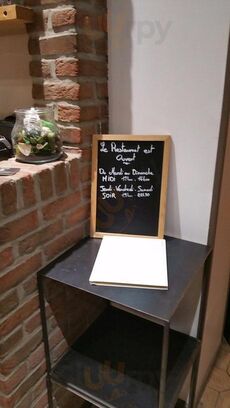 Le Restaurant est
Ouvert
Du Mardi au Dimanche
MIDI
Jeudi. Vendredi. Samedi
SOIR